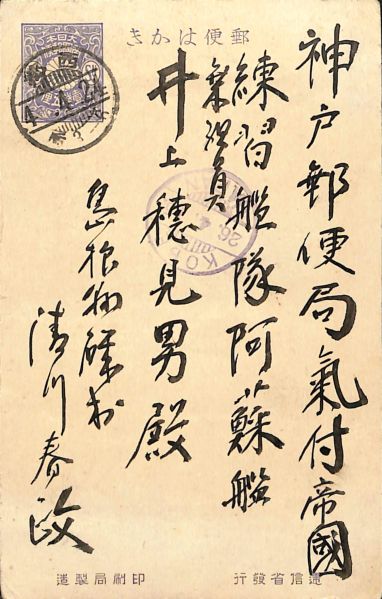 郵便はかき
神戸郵便局氣付帝國
練習艦隊阿蘇艦
乗組員
井上穂見男殿
島根物産
清川春政
KO
26
4.4.27
逓信省發行
印刷局製造